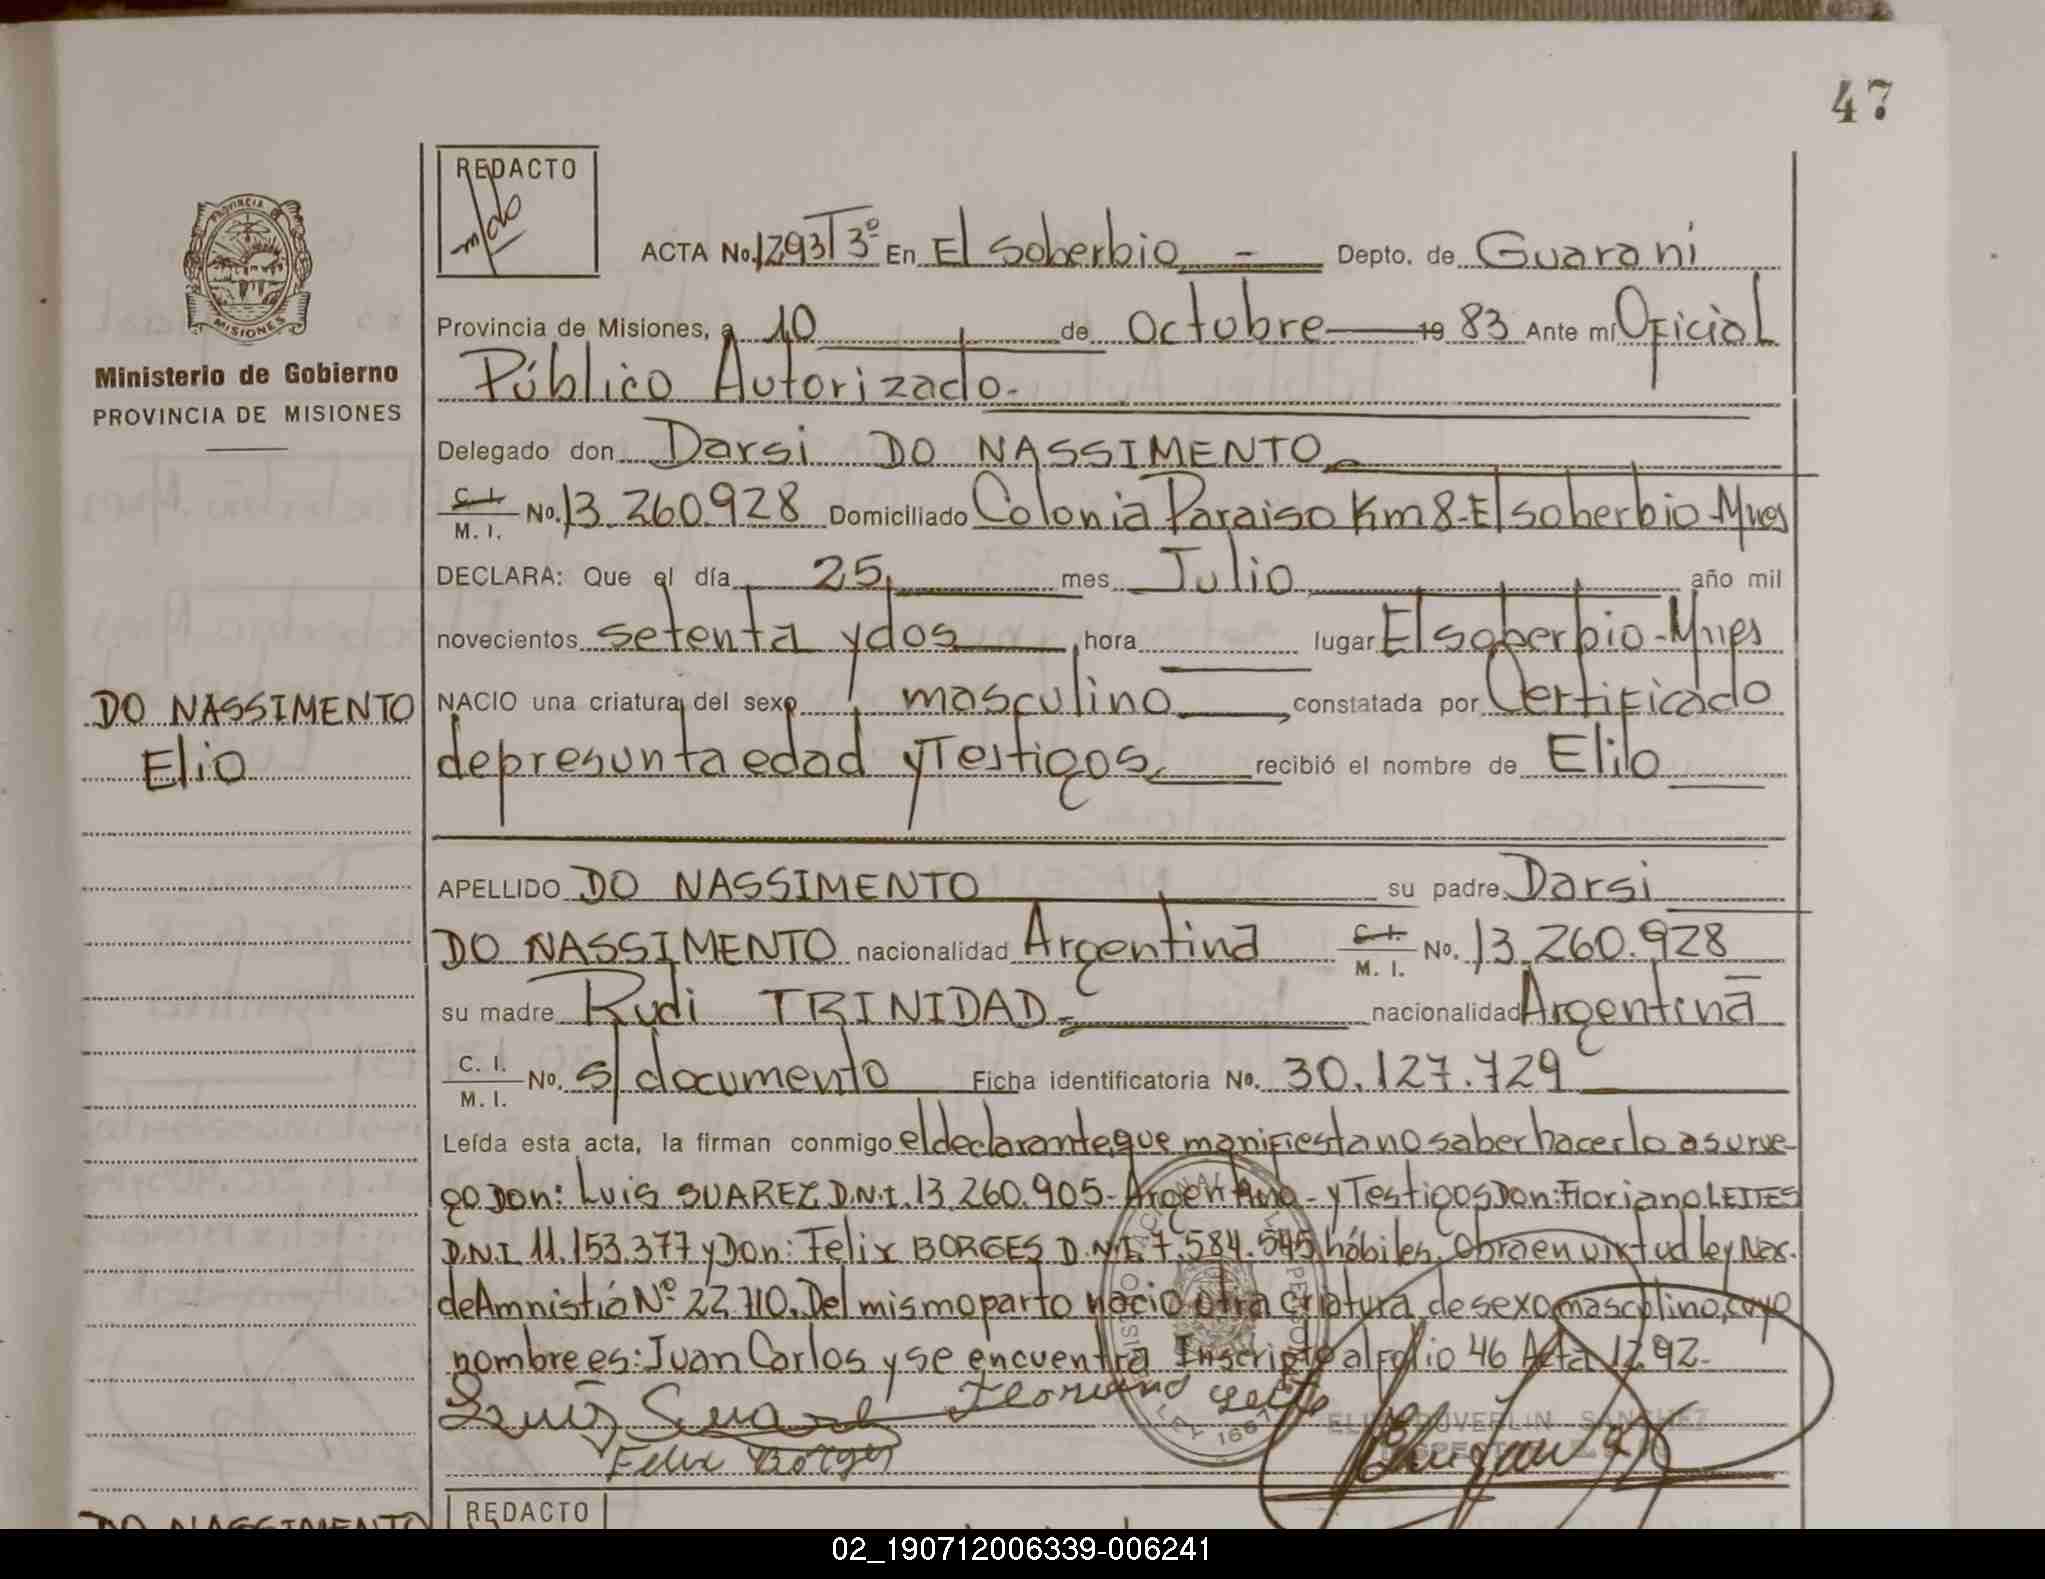 47
REDACTO
ACTA No. 1293 T 3º En El Soberbio - Depto. de Guarani
Provincia de Misiones, a 10 de Octubre 19 83 Ante mí Oficial
Público Autorizado.-
Ministerio de Gobierno
PROVINCIA DE MISIONES
Delegado don Darsi DO NASSIMENTO
C. I. M. I. No. 13.260.928 Domiciliado Colonia Paraiso Km 8-El Soberbio-Mnes
DECLARA: Que el día 25 mes Julio año mil
novecientos setenta y dos hora lugar El Soberbio-Mnes
DO NASSIMENTO
Elio
NACIO una criatura del sexo masculino, constatada por Certificado
de presunta edad y Testigos, recibió el nombre de Elilo
APELLIDO DO NASSIMENTO su padre Darsi
DO NASSIMENTO nacionalidad Argentina C. I. M. I. No. 13.260.928
su madre Rudi TRINIDAD nacionalidad Argentina
C. I. M. I. No. s/documento Ficha identificatoria No. 30.127.729
Leída esta acta, la firman conmigo el declarante, que manifiesta no saber hacerlo a su rue-
go Don: Luis SUAREZ D.N.I. 13.260.905-Argentino-y Testigos Don: Floriano LEITES
D.N.I 11.153.377 y Don: Felix BORGES D.N.I. 7.584.545 hábiles. Obra en virtud ley Nac.
de Amnistia Nº 22.710. Del mismo parto nació otra criatura, de sexo masculino, cuyo
nombre es: Juan Carlos y se encuentra Inscripto al folio 46 Acta 1292-
Luis Suarez Floriano Leite
Felix Borges
SANCHEZ
DO NASSIMENTO
REDACTO
02_190712006339-006241